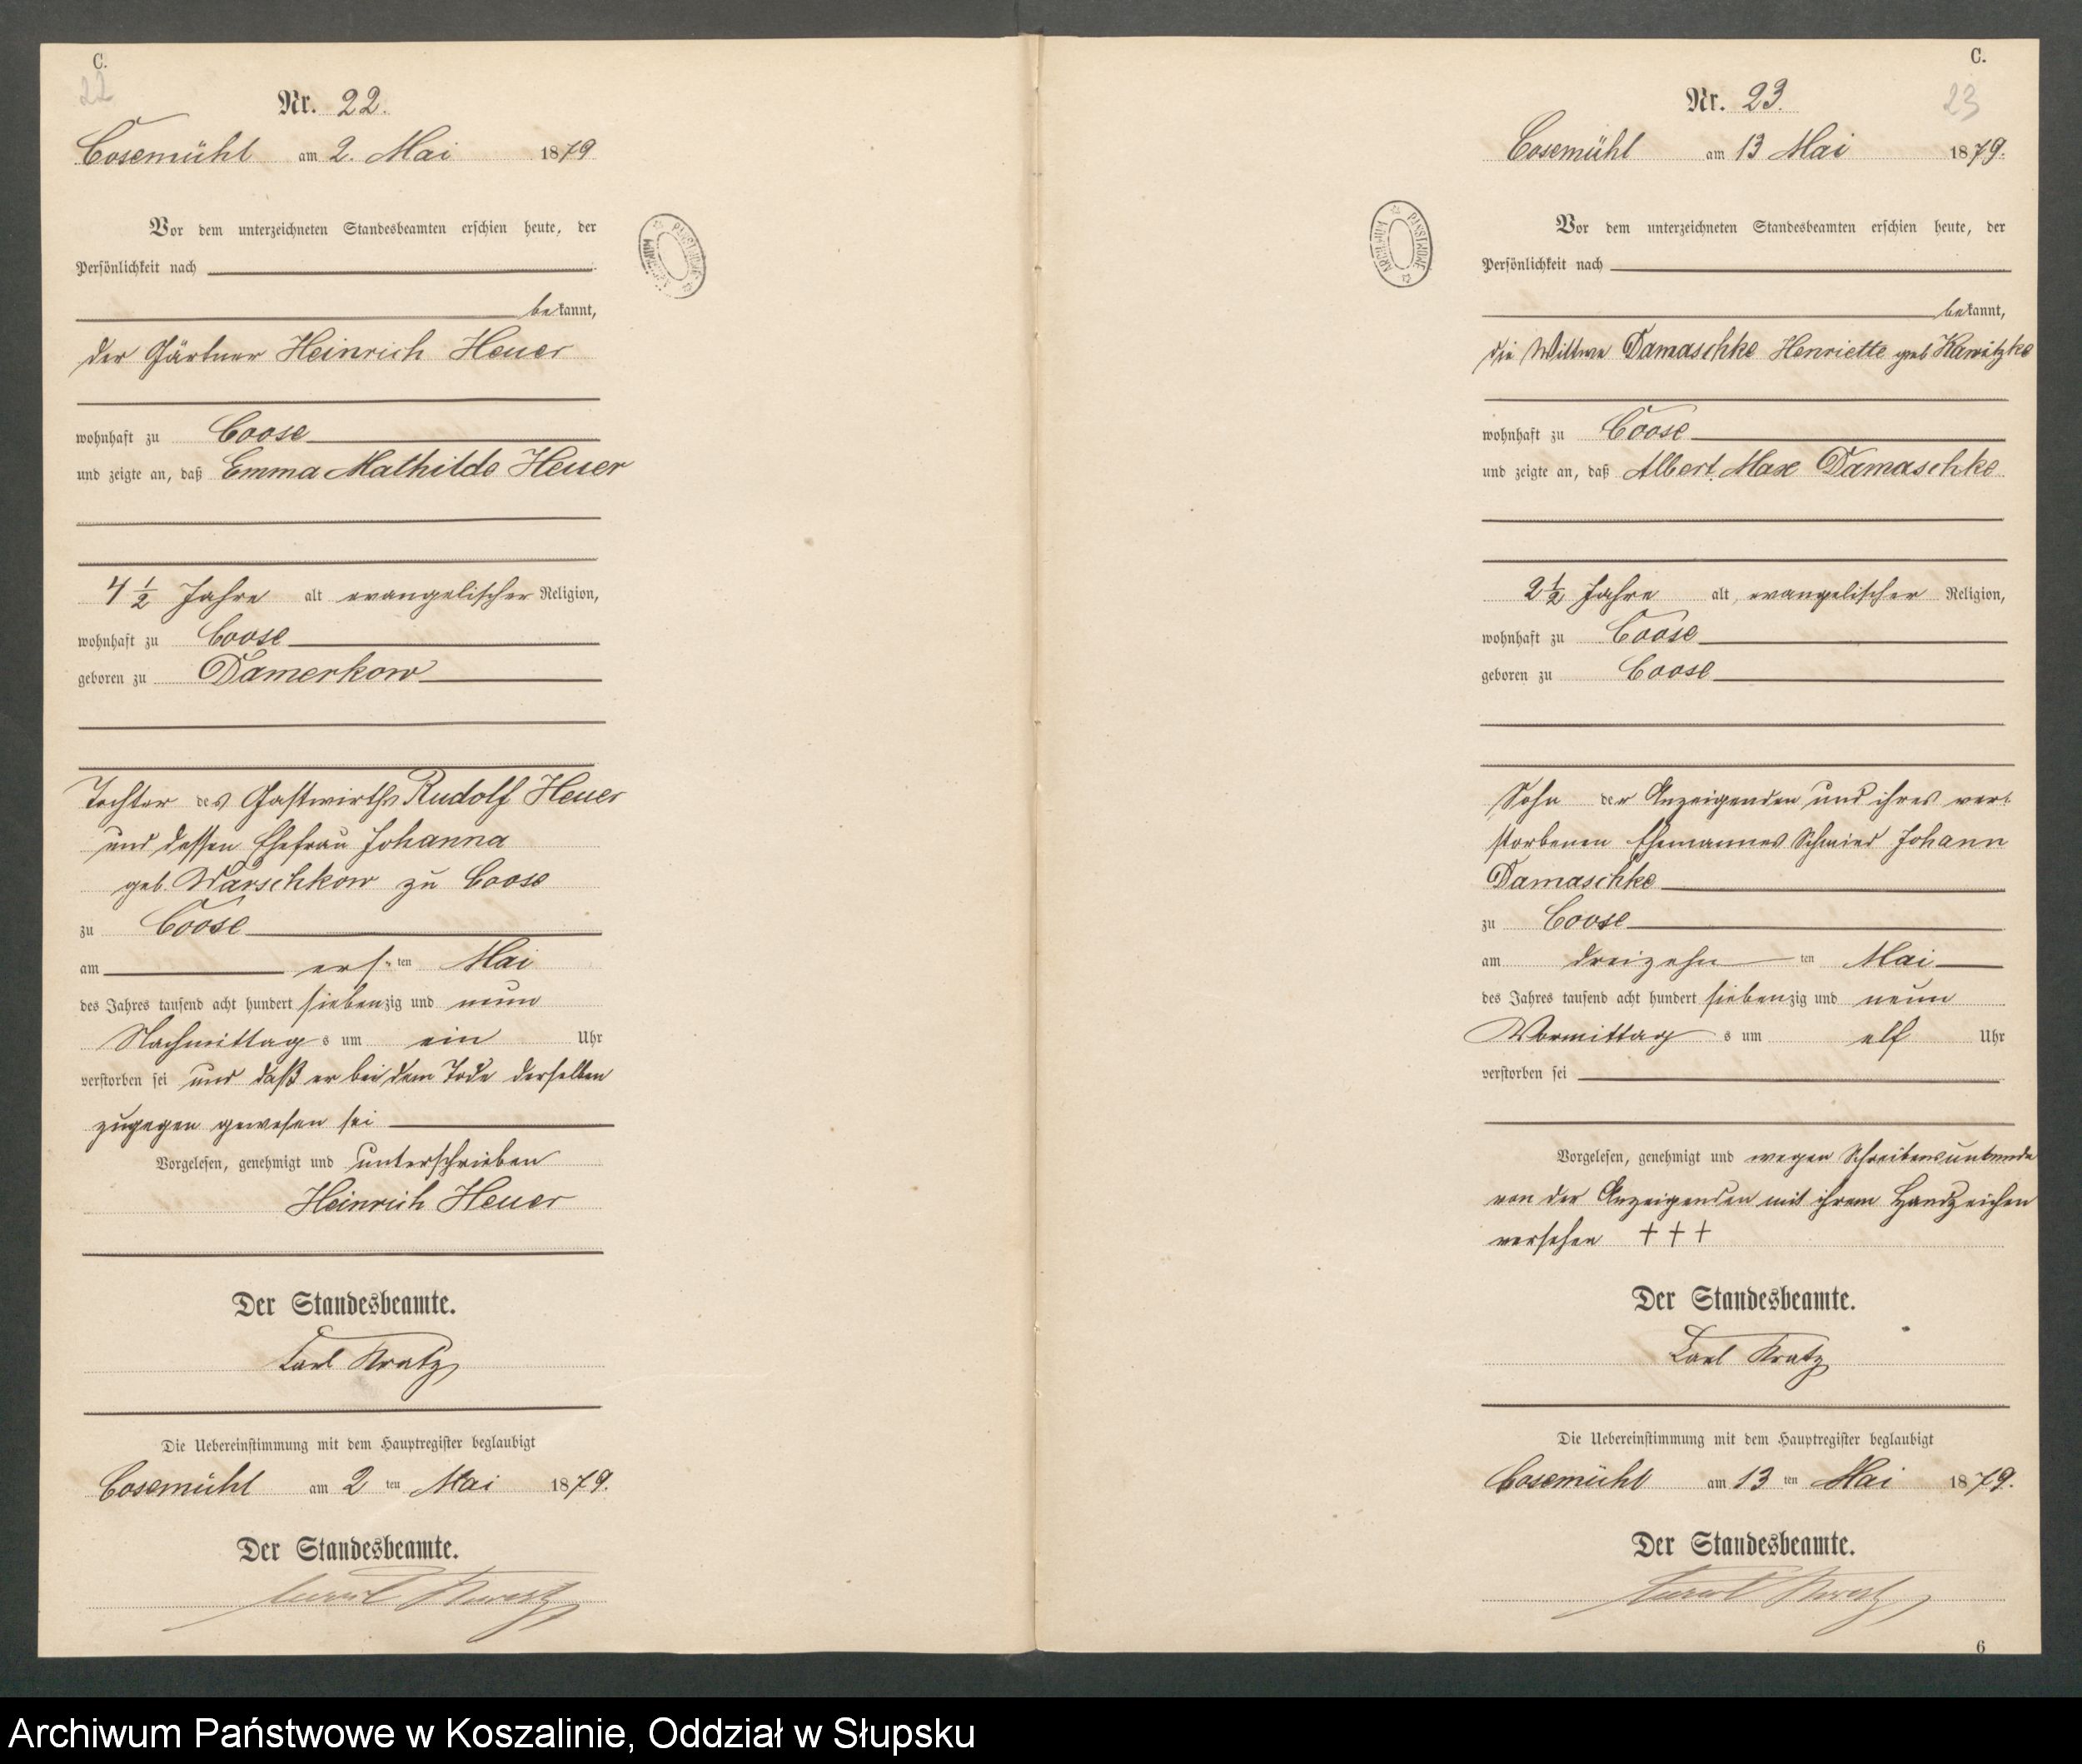 C.
22
Nr. 22.
Cosemühl am 2. Mai 1879
Vor dem unterzeichneten Standesbeamten erschien heute, der
Persönlichkeit nach
bekannt,
der Gärtner Heinrich Heuer
wohnhaft zu Coose
und zeigte an, daß Emma Mathilde Heuer
4 1/2 Jahre alt evangelischer Religion,
wohnhaft zu Coose
geboren zu Damerkow
Tochter des Gastwirths Rudolf Heuer
und dessen Ehefrau Johanna
geb. Warschkow zu Coose
zu Coose
am ersten Mai
des Jahres tausend acht hundert siebenzig und neun
Nachmittags um ein Uhr
verstorben sei und daß er bei dem Tode derselben
zugegen gewesen sei
Vorgelesen, genehmigt und unterschrieben
Heinrich Heuer
Der Standesbeamte.
Carl Kratz
Die Uebereinstimmung mit dem Hauptregister beglaubigt
Cosemühl am 2ten Mai 1879.
Der Standesbeamte.
Kratz
ARCHIWUM PAŃSTWOWE
C.
23
Nr. 23.
Cosemühl am 13 Mai 1879.
Vor dem unterzeichneten Standesbeamten erschien heute, der
Persönlichkeit nach
bekannt,
die Wittwe Damaschke Henriette geb Kawitzke
wohnhaft zu Coose
und zeigte an, daß Albert Max Damaschke
2 1/2 Jahre alt, evangelischer Religion,
wohnhaft zu Coose
geboren zu Coose
Sohn der Anzeigenden und ihres ver-
storbenen Ehemannes Schmied Johann
Damaschke
zu Coose
am dreizehnten Mai
des Jahres tausend acht hundert siebenzig und neun
Vormittags um elf Uhr
verstorben sei
Vorgelesen, genehmigt und wegen Schreibensunkunde
von der Anzeigenden mit ihrem Handzeichen
versehen + + +
Der Standesbeamte.
Carl Kratz
Die Uebereinstimmung mit dem Hauptregister beglaubigt
Cosemühl am 13ten Mai 1879.
Der Standesbeamte.
Kratz
6
ARCHIWUM PAŃSTWOWE
Archiwum Państwowe w Koszalinie, Oddział w Słupsku